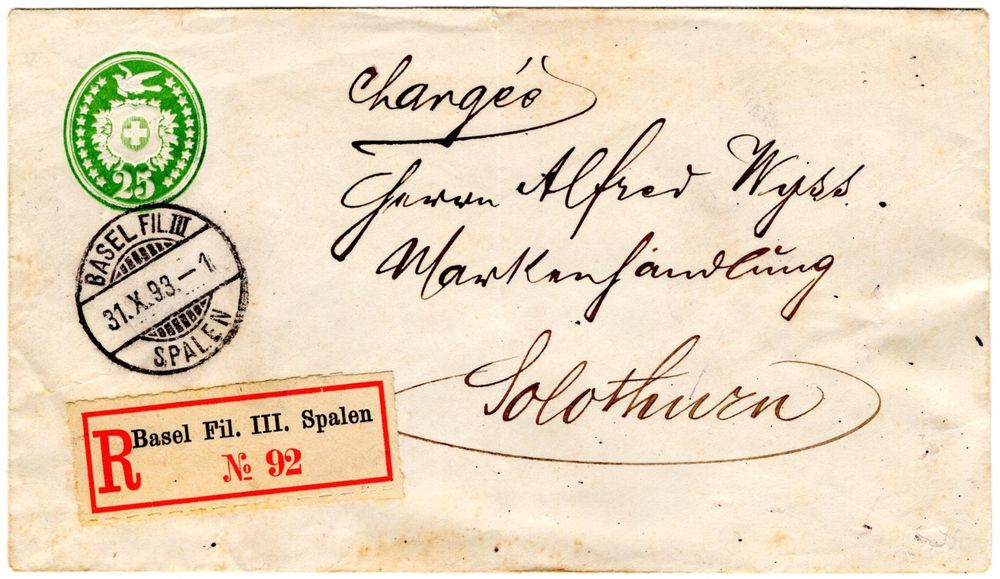 25
BASEL FIL. III
31.X.93.–1
SPALEN
Chargée
Herrn Alfred Wyss.
Markenhandlung
Solothurn
R Basel Fil. III. Spalen
№ 92